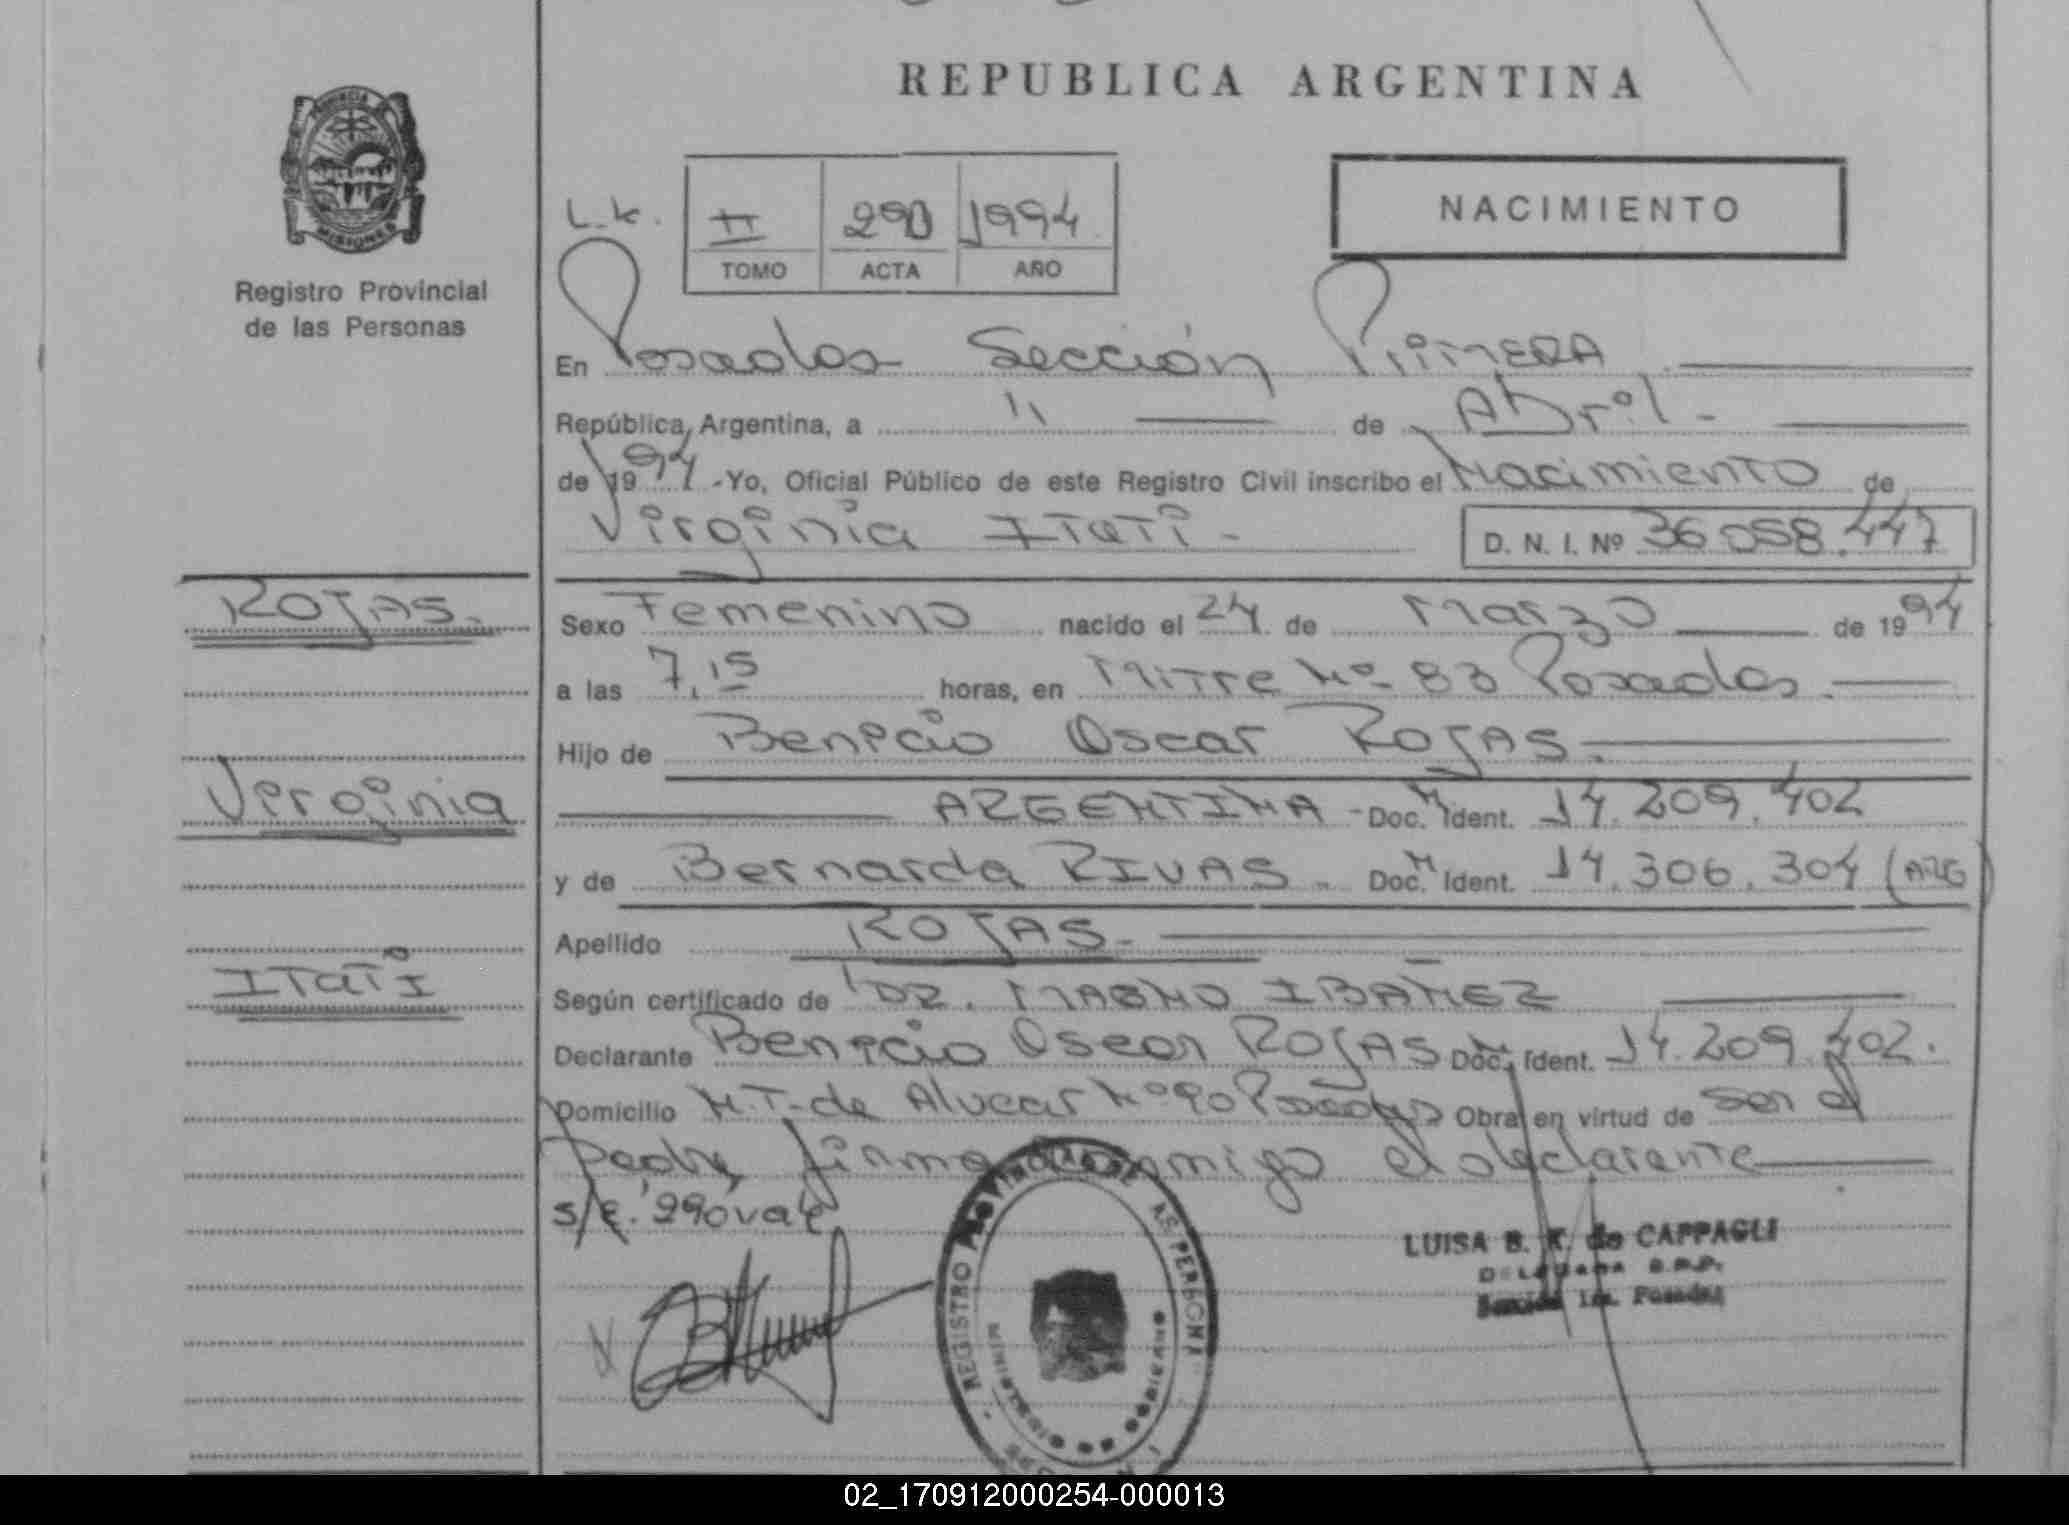 REPUBLICA ARGENTINA
PROVINCIA DE
MISIONES
Registro Provincial
de las Personas
L.K.
II 290 1994
TOMO ACTA AÑO
NACIMIENTO
En Posadas Sección Primera
República Argentina, a 11 de Abril
de 1994 -Yo, Oficial Público de este Registro Civil inscribo el Nacimiento de
Virginia Itati - D. N. I. Nº 36.058.447
ROJAS.
Sexo Femenino nacido el 24 de Marzo de 1994
a las 7,15 horas, en Mitre Nº 83 Posadas.
Hijo de Benicio Oscar ROJAS.
Virginia
ARGENTINA - Doc. Ident. 14.209.402
y de Bernarda RIVAS. Doc. Ident. 14.306.304 (ARG
Apellido ROJAS.
Itati
Según certificado de DR. MAGNO IBAÑEZ
Declarante Benicio Oscar ROJAS Doc. Ident. 14.209.402.
Domicilio M.T. de Alvear Nº 90 Posadas Obra en virtud de ser el
padre firma conmigo el declarante
s/e. 290 vale
REGISTRO PROVINCIAL DE LAS PERSONAS
LUISA B. K. de CAPPAGLI
DELEGADA R.P.P.
Sección 1ra. Posadas
02_170912000254-000013